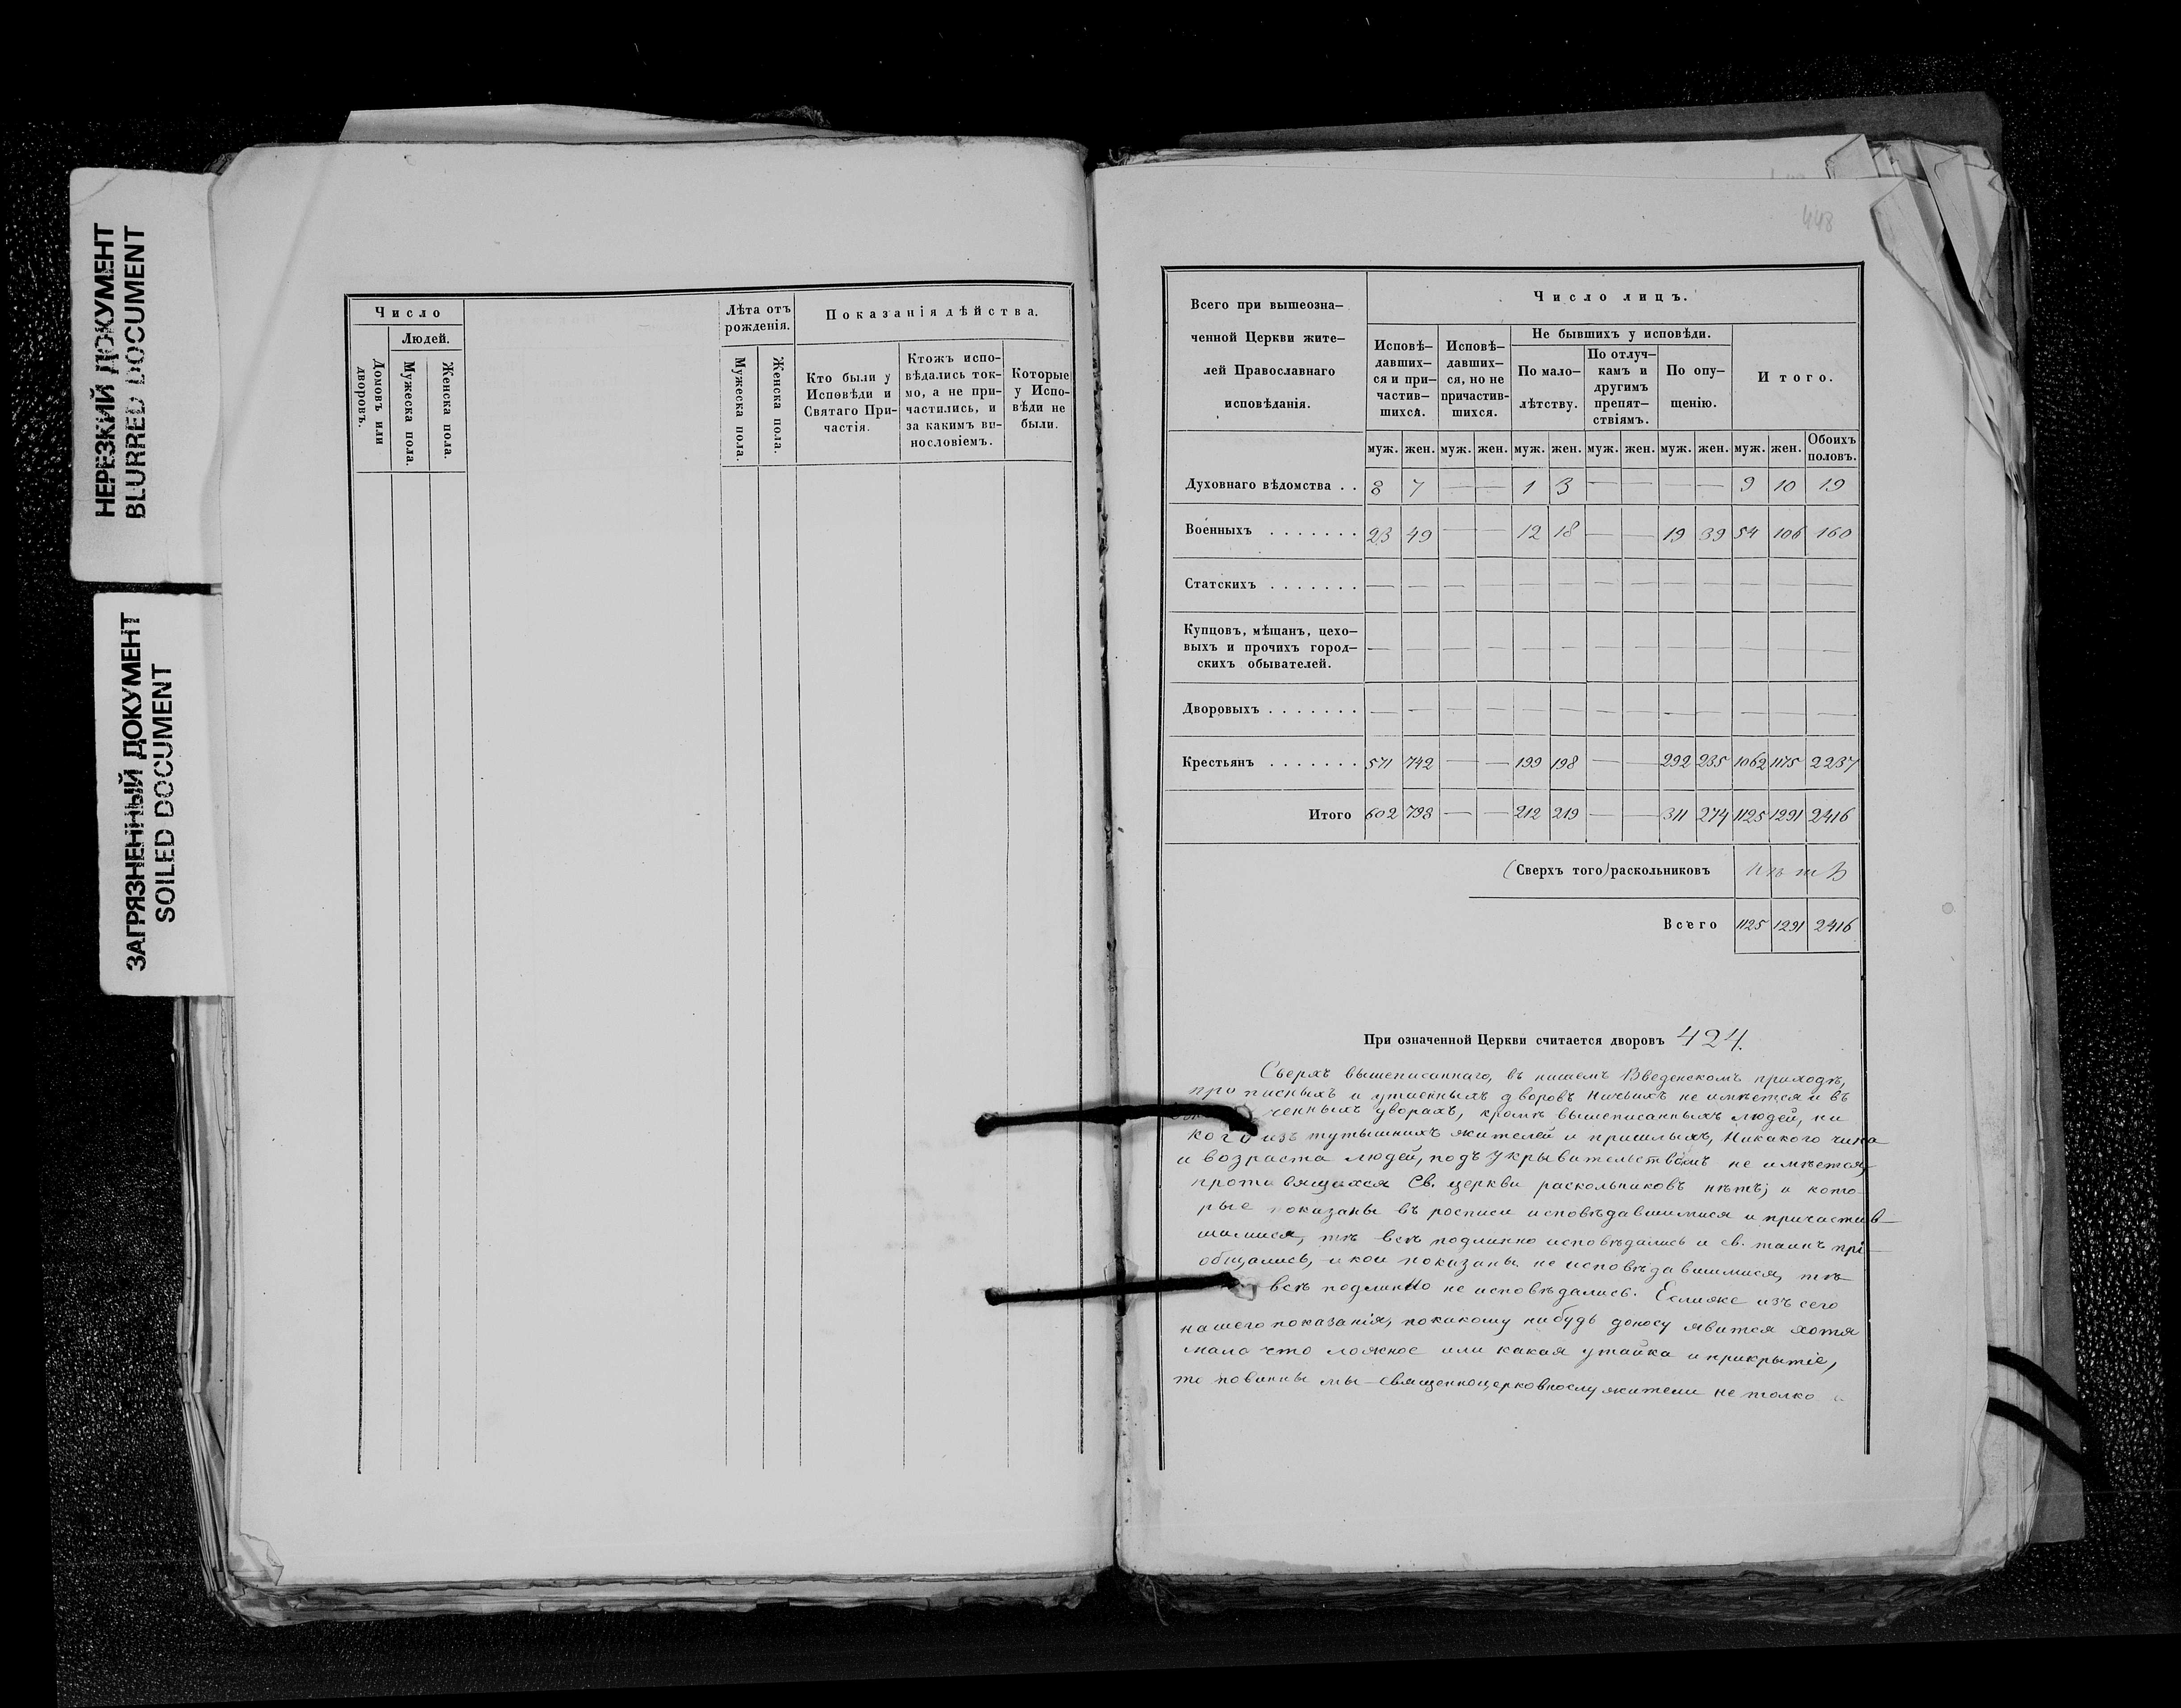 НЕРЕЗКИЙ ДОКУМЕНТ
BLURRED DOCUMENT
ЗАГРЯЗНЕННЫЙ ДОКУМЕНТ
SOILED DOCUMENT
Число
Людей.
Домовъ или дворовъ.
Мужеска пола.
Женска пола.
Лѣта отъ рожденія.
Мужеска пола.
Женска пола.
Показанія дѣйства.
Кто были у Исповѣди и Святаго Причастія.
Ктожъ исповѣдались токмо, а не причастились, и за какимъ винословіемъ.
Которые у Исповѣди не были.
448
Всего при вышеозна-
ченной Церкви жите-
лей Православнаго
исповѣданія.
Число лицъ.
Исповѣдавших-ся и причастив-шихся.
Исповѣдавших-ся, но не причастив-шихся.
Не бывшихъ у исповѣди.
По мало-лѣтству.
По отлуч-камъ и другимъ препят-ствіямъ.
По опу-щенію.
Итого.
муж. жен. муж. жен. муж. жен. муж. жен. муж. жен. муж. жен. Обоихъ половъ.
Духовнаго вѣдомства . . 8 7 — — 1 3 — — — — 9 10 19
Военныхъ . . . . . . . 23 49 — — 12 18 — — 19 39 54 106 160
Статскихъ . . . . . . . — — — — — — — — — — — — —
Купцовъ, мѣщанъ, цехо-
выхъ и прочихъ город- — — — — — — — — — — — — —
скихъ обывателей.
Дворовыхъ . . . . . . . — — — — — — — — — — — — —
Крестьянъ . . . . . . . 571 742 — — 199 198 — — 292 235 1062 1175 2237
Итого 602 798 — — 212 219 — — 311 274 1125 1291 2416
(Сверхъ того) раскольниковъ нѣтъ
Всего 1125 1291 2416
При означенной Церкви считается дворовъ 424.
Сверхъ вышеписаннаго, въ нашемъ Введенскомъ приходѣ,
прописныхъ и утаенныхъ дворовъ ничьихъ не имѣется и въ
ченныхъ дворахъ, кромѣ вышеписанныхъ людей, ни
кого изъ тутышнихъ жителей и пришлыхъ, никакого чина
и возраста людей, подъ укрывительствомъ не имѣется,
противящихся Св. церкви раскольниковъ нѣтъ; и кото-
рые показаны въ росписи исповѣдавшимися и причастив-
шимися, тѣ всѣ подлинно исповѣдались и св. таинъ прі-
общались, и кои показаны не исповѣдавшимися, тѣ
всѣ подлинно не исповѣдались. Еслиже изъ сего
нашего показанія, покакому нибудь доносу явится хотя
мало что ложное или какая утайка и прикрытіе,
то повинны мы священноцерковнослужители не толко